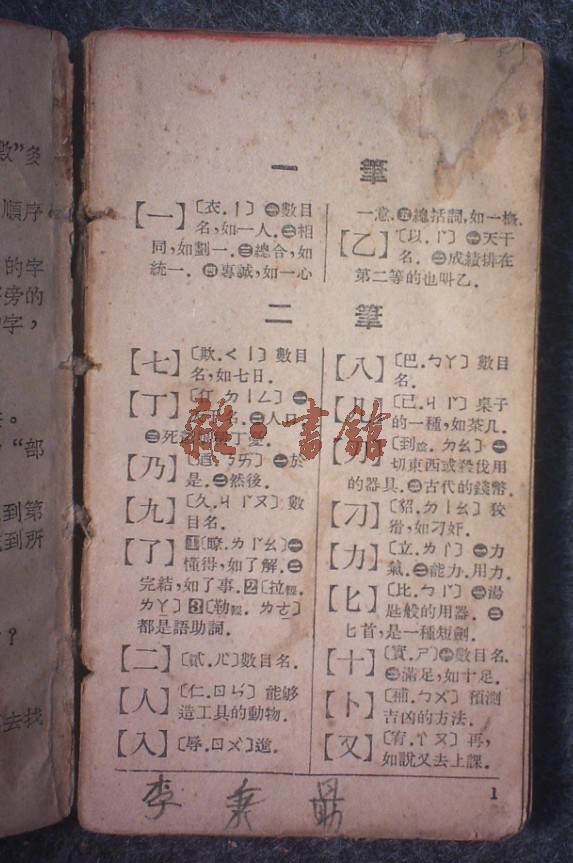 數”多
順序
的字
旁的
字，
“部
到第
到所
？
去找
一　筆
【一】〔衣．丨〕㊀數目
名，如一人．㊁相
同，如劃一．㊂總合，如
統一．㊃專誠，如一心
一意．㊄總括詞，如一概．
【乙】〔以．丨〕㊀天干
名．㊁成績排在
第二等的也叫乙．
二　筆
【七】〔欺．ㄑ丨〕數目
名，如七日．
【丁】ㄉ丨ㄥ〕㊀
㊁人口．
㊂死
【乃】ㄋㄞ〕㊀於
是．㊁然後．
【九】〔久．ㄐ丨ㄡ〕數
目名．
【了】1〔瞭．ㄌ丨ㄠ〕㊀
懂得，如了解．㊁
完結，如了事．2〔拉輕．
ㄌㄚ〕3〔勒輕．ㄌㄜ〕
都是語助詞．
【二】〔貳．ㄦ〕數目名．
【人】〔仁．ㄖㄣ〕能够
造工具的動物．
【入】〔辱．ㄖㄨ〕進．
【八】〔巴．ㄅㄚ〕數目
名．
【几】〔已．ㄐ丨〕桌子
的一種，如茶几．
【刀】〔到陰．ㄉㄠ〕㊀
切東西或殺伐用
的器具．㊁古代的錢幣．
【刁】〔貂．ㄉ丨ㄠ〕狡
猾，如刁奸．
【力】〔立．ㄌ丨〕㊀力
氣．㊁能力．用力．
【匕】〔比．ㄅ丨〕㊀湯
匙般的用器．㊁
匕首，是一種短劍．
【十】〔實．ㄕ〕㊀數目名．
㊁滿足，如十足．
【卜】〔補．ㄅㄨ〕預測
吉凶的方法．
【又】〔宥．丨ㄡ〕再，
如說又去上課．
1
雜·書館
李